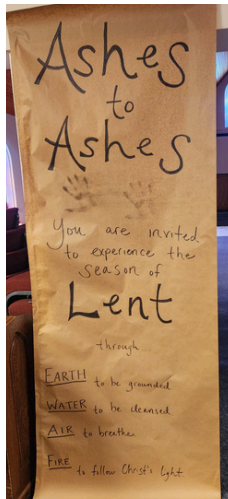 Ashes
to
Ashes
You are invited
to experience the
season of
Lent
through...
EARTH to be grounded
WATER to be cleansed
AIR to breathe
FIRE to follow Christ's light